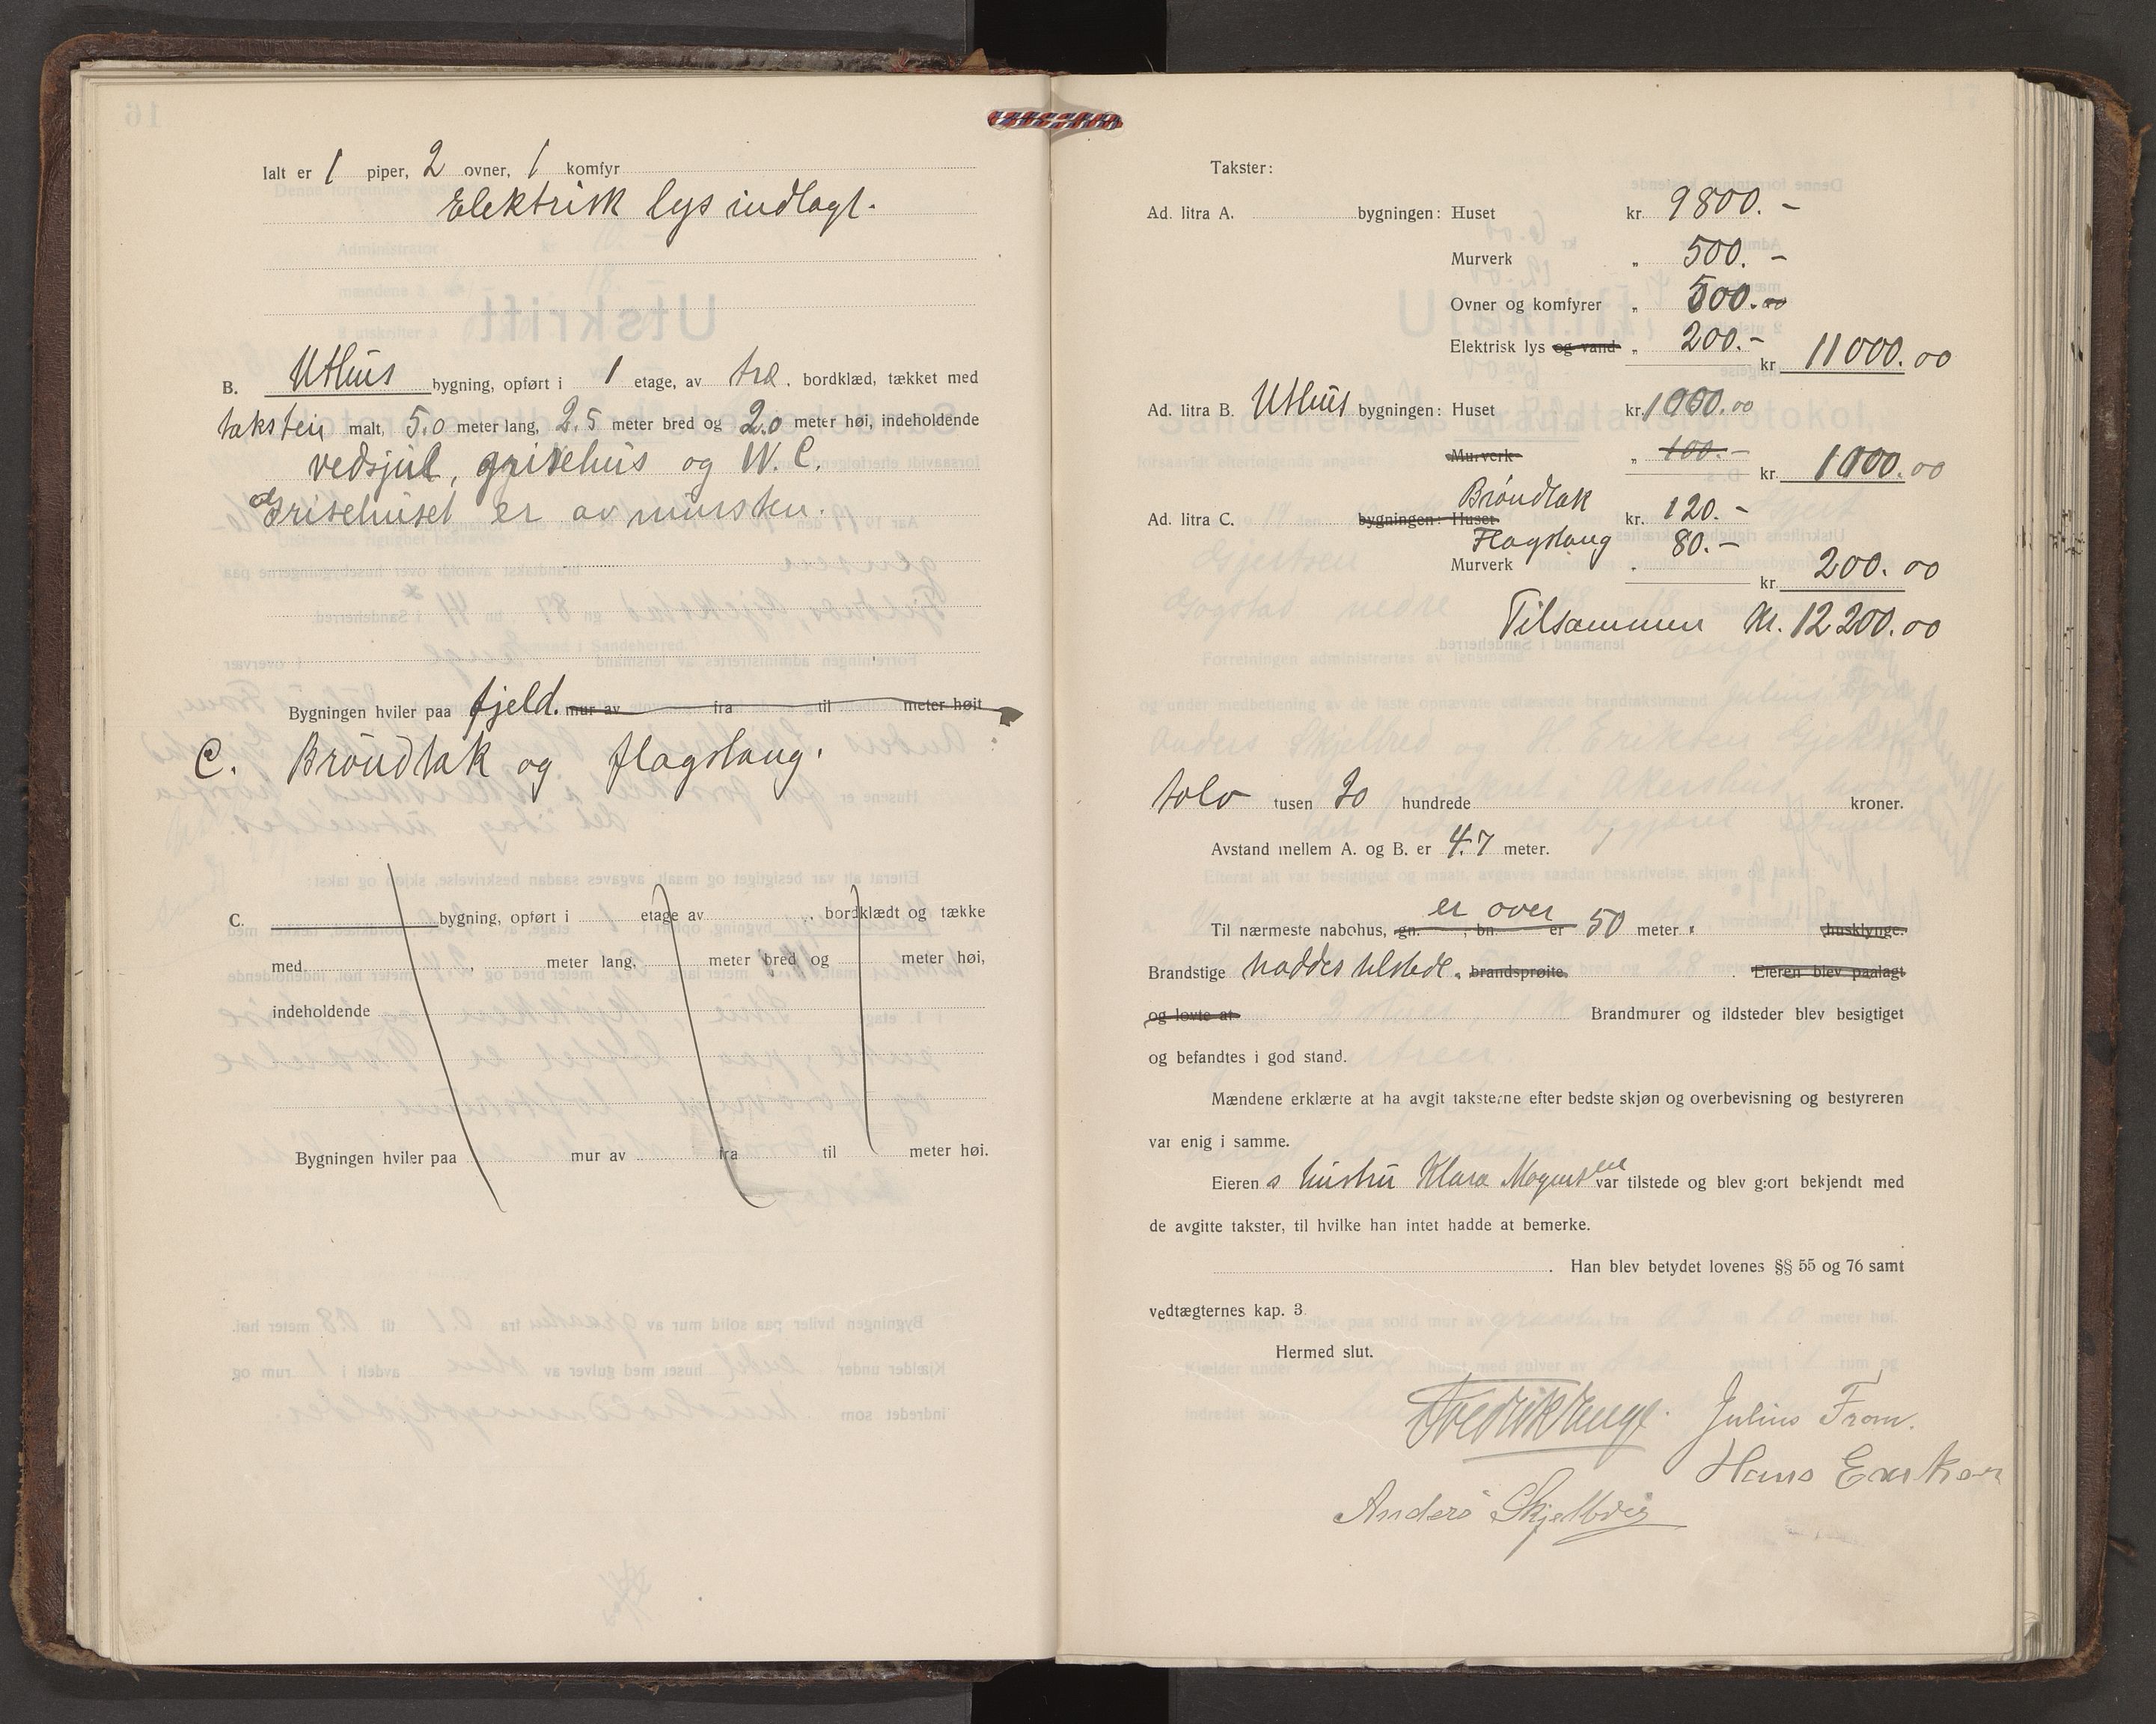 Ialt er 1 piper, 2 ovner, 1 komfyr
Elektrisk lys indlagt.
B. Uthus bygning, opført i 1 etage, av træ, bordklæd, tækket med
taksten malt, 5.0 meter lang, 2.5 meter bred og 2.0 meter høi, indeholdende
vedsjul, grisehus og W.C.
Grisehuset er av mursten.
Bygningen hviler paa fjeld. mur av fra til meter høit
C. Brøndtak og flagstang.
C. bygning, opført i etage av , bordklædt og tække
med , meter lang, meter bred og meter høi,
indeholdende
Bygningen hviler paa mur av fra til meter høi.
Takster:
Ad. litra A. bygningen: Huset kr. 9800.-
Murverk „ 500.-
Ovner og komfyrer „ 500.00
Elektrisk lys og vand „ 200.-
kr. 11000.00
Ad. litra B. Uthus bygningen: Huset kr. 1000.00
Murverk „ 100.-
kr. 1000.00
Brøndtak
Ad. litra C. bygningen: Huset kr. 120.-
Flagstang 80.-
Murverk „
kr. 200.00
Tilsammen Kr. 12200.00
tolv tusen to hundrede kroner.
Avstand mellem A. og B. er 4.7 meter.
er over
Til nærmeste nabohus, gn. , bn. er 50 meter. husklynge.
Brandstige haddes tilstede. brandsprøite. Eieren blev paalagt
og lovte at Brandmurer og ildsteder blev besigtiget
og befandtes i god stand.
Mændene erklærte at ha avgit taksterne efter bedste skjøn og overbevisning og bestyreren
var enig i samme.
Eieren s hustru Klara var tilstede og blev gjort bekjendt med
de avgitte takster, til hvilke han intet hadde at bemerke.
. Han blev betydet lovenes §§ 55 og 76 samt
vedtægternes kap. 3
Hermed slut.
Fredrik Enge. Julius From.
Hans Eriksen
Anders Skjelbred